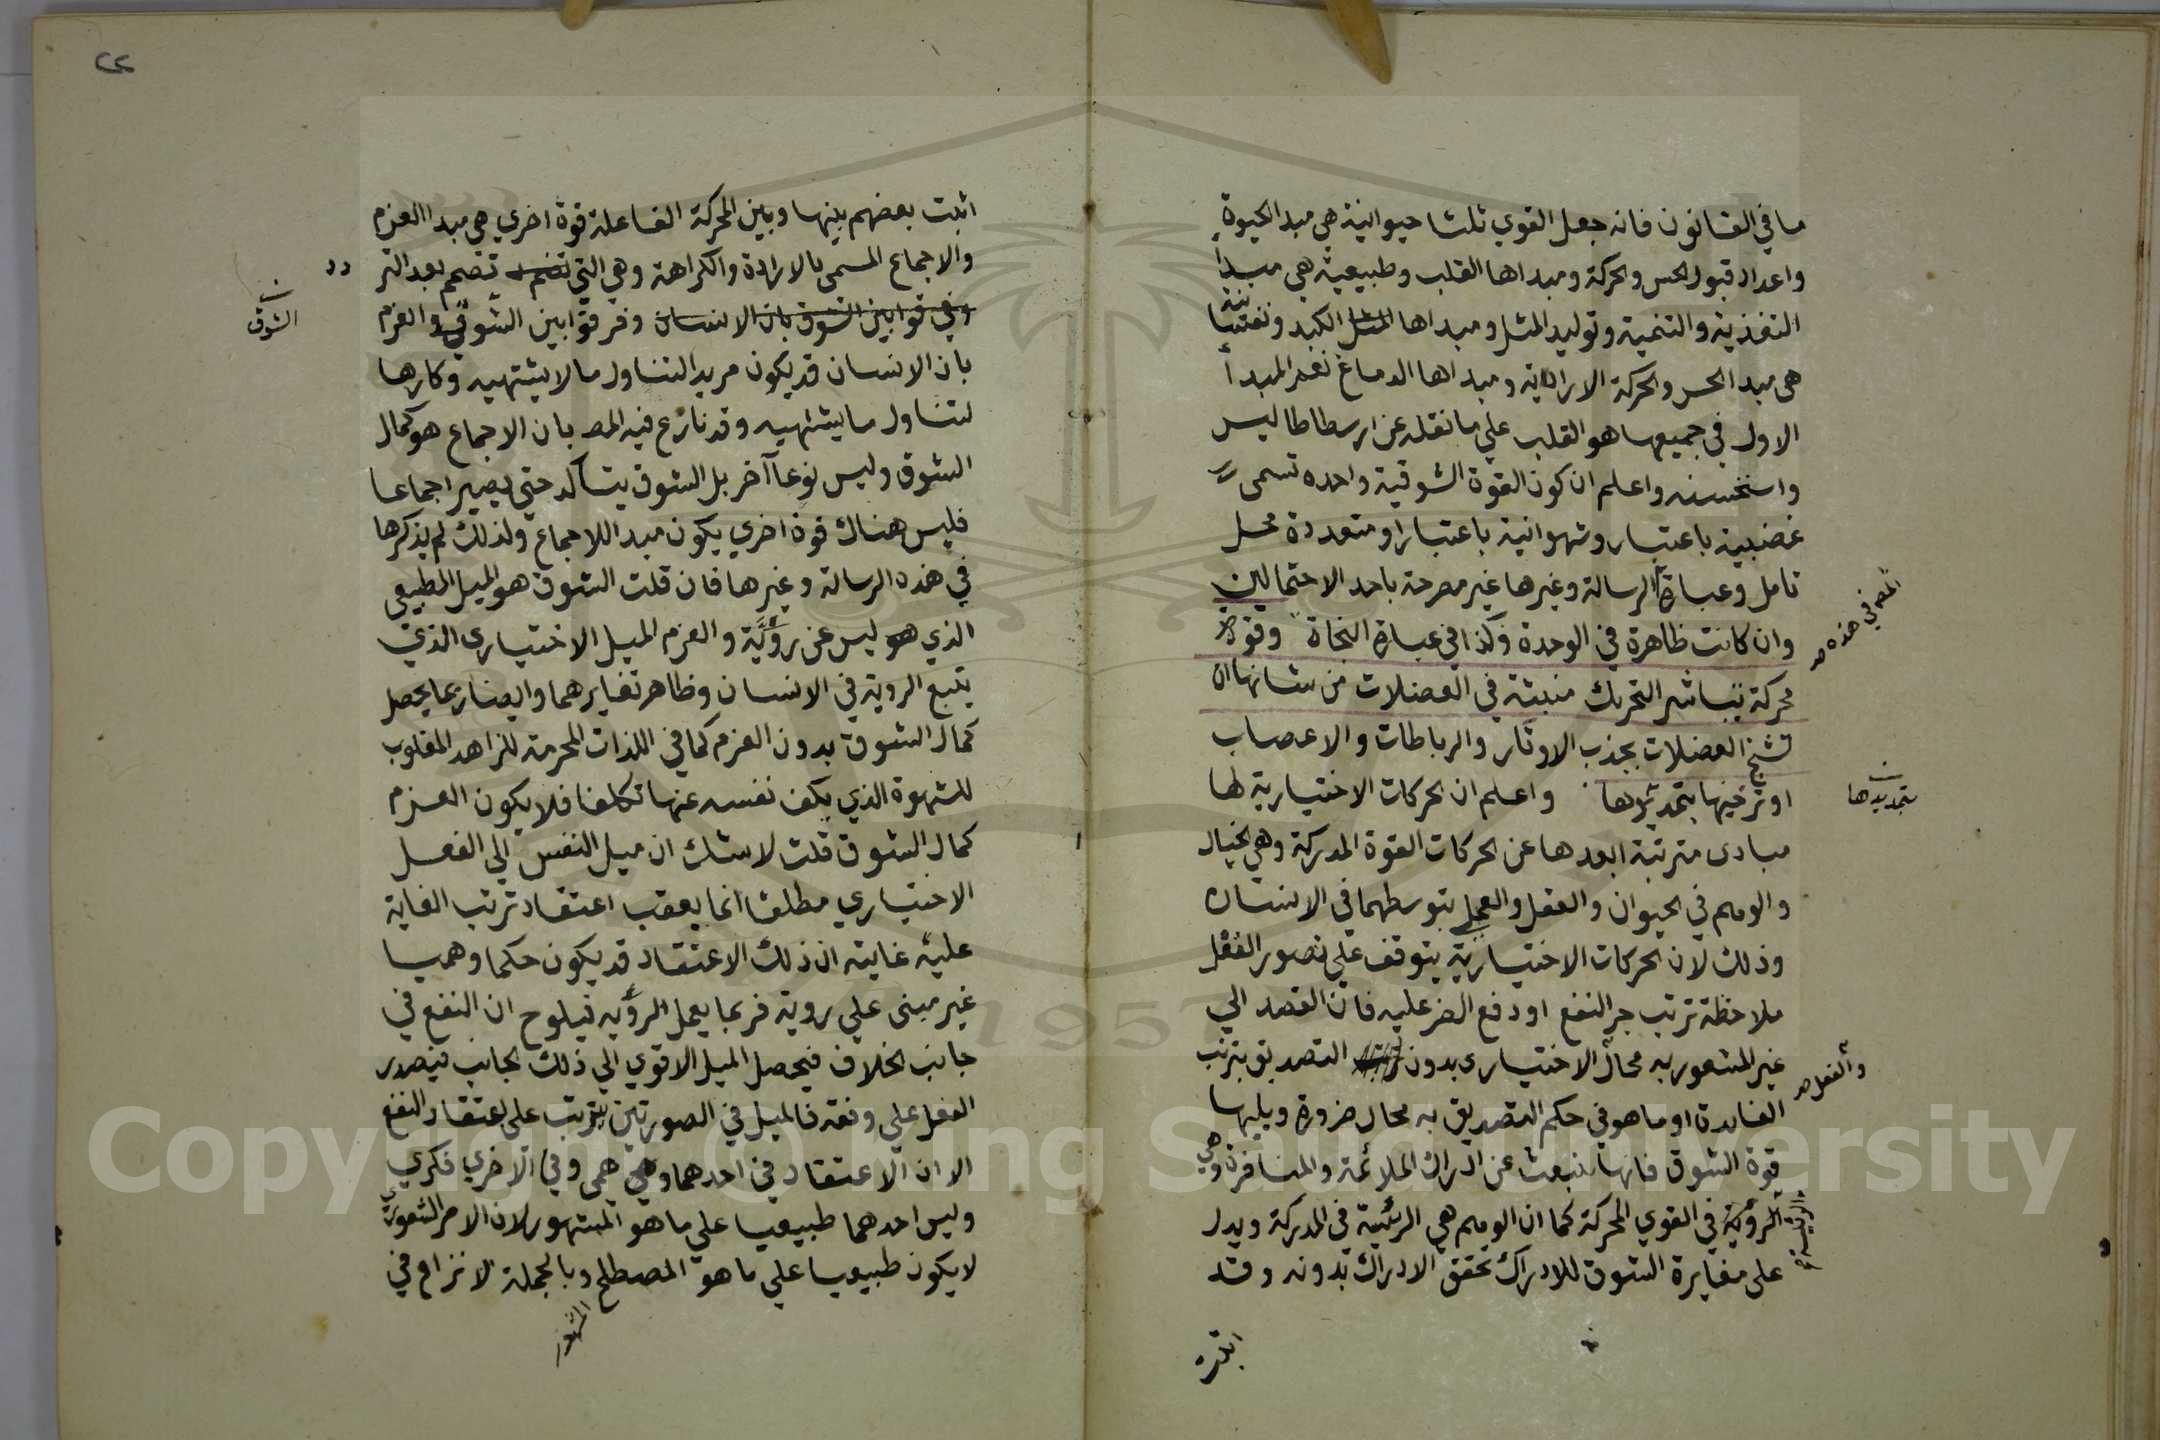 ما في القانون فانه جعل القوي ثلثا حيوانية هي مبدا الحيوة
واعداد قبول الحس والحركة ومبداها القلب وطبيعية هي مبدأ
التغذية والتنمية وتوليد المثل ومبداها الكبد ونفسانية
هي مبدا الحس والحركة الارادية ومبداها الدماغ نعم المبدأ
الاول في جميعها هو القلب علي ما نقله عن ارسطاطاليس
واستحسنه واعلم ان كون القوة الشوقية واحده تسمى
غضبية باعتبار وشهوانية باعتبار او متعددة محل
تامل وعبارة الرسالة وغيرها غير مصرحة باحد الاحتمالين
المصـ في هذه صح
وان كانت ظاهرة في الوحدة وكذا في عبارة النجاة وقوة
محركة تباشر التحريك منبثة في العضلات من شانها ان
تشنج العضلات بجذب الاوتار والرباطات والاعصاب
او ترخيها بتمديدها واعلم ان الحركات الاختيارية لها
بتمديدها
مبادى مترتبة ابعدها عن الحركات القوة المدركة وهي الخيال
والوهم في الحيوان والعقل والعملي بتوسطهما في الانسان
وذلك لان الحركات الاختيارية يتوقف علي تصور الفعل
ملاحظة ترتب جر النفع او دفع الضر عليه فان القصد الي
غير المشعور به محال الاختيارى بدون التصديق بترتب
والفعل صح
الفائدة او ما هو في حكم التصديق به محال ضرورة ويليها
قوة الشوق فانها تنبعث عن ادراك الملائمة والمنافرة وهي
الرئيسة في القوي المحركة كما ان الوهم هي الرئيسة في المدركة ويدل
على مغايرة الشوق للادراك تحقق الادراك بدونه وقد
اثبت
٢٢
اثبت بعضهم بينها وبين المحركة الفاعلة قوة اخري هي مبدا العزم
والاجماع المسمى بالارادة والكراهة وهي التي تصمم بعد التر
دد
وفرقوا بين الشوق والعزم
الشوق
بان الانسان قد يكون مريد التناول ما لا يشتهيه وكارها
لتناول ما يشتهيه وقد نازع فيه المصـ بان الاجماع هو كمال
الشوق وليس نوعا آخر بل الشوق يتأكد حتي يصير اجماعا
فليس هناك قوة اخري يكون مبدا للاجماع ولذلك لم يذكرها
في هذه الرسالة وغيرها فان قلت الشوق هو الميل الطبيعى
الذي هو ليس عن روية والعزم الميل الاختيارى الذي
يتبع الروية في الانسان وظاهر تغايرهما وايضا ربما يحصل
كمال الشوق بدون العزم كما في اللذات المحرمة للزاهد المغلوب
للشهوة الذي يكف نفسه عنها تكلفا فلا يكون العزم
كمال الشوق قلت لا شك ان ميل النفس الي الفعل
الاختياري مطلقا انما يعقب اعتقاد ترتب الغاية
عليه غايته ان ذلك الاعتقاد قد يكون حكما وهميا
غير مبنى علي روية فربما يعمل الروية فيلوح ان النفع في
جانب الخلاف فيحصل الميل الاقوي الي ذلك الجانب فيصدر
الفعل علي وفقه فالميل في الصورتين يترتب على اعتقاد النفع
الا ان الاعتقاد في احدهما وهمى وفي الاخري فكري
وليس احدهما طبيعيا على ما هو المشهور لان الامر الشعوري
لا يكون طبيعيا علي ما هو المصطلح وبالجملة لا نزاع في
المشهور